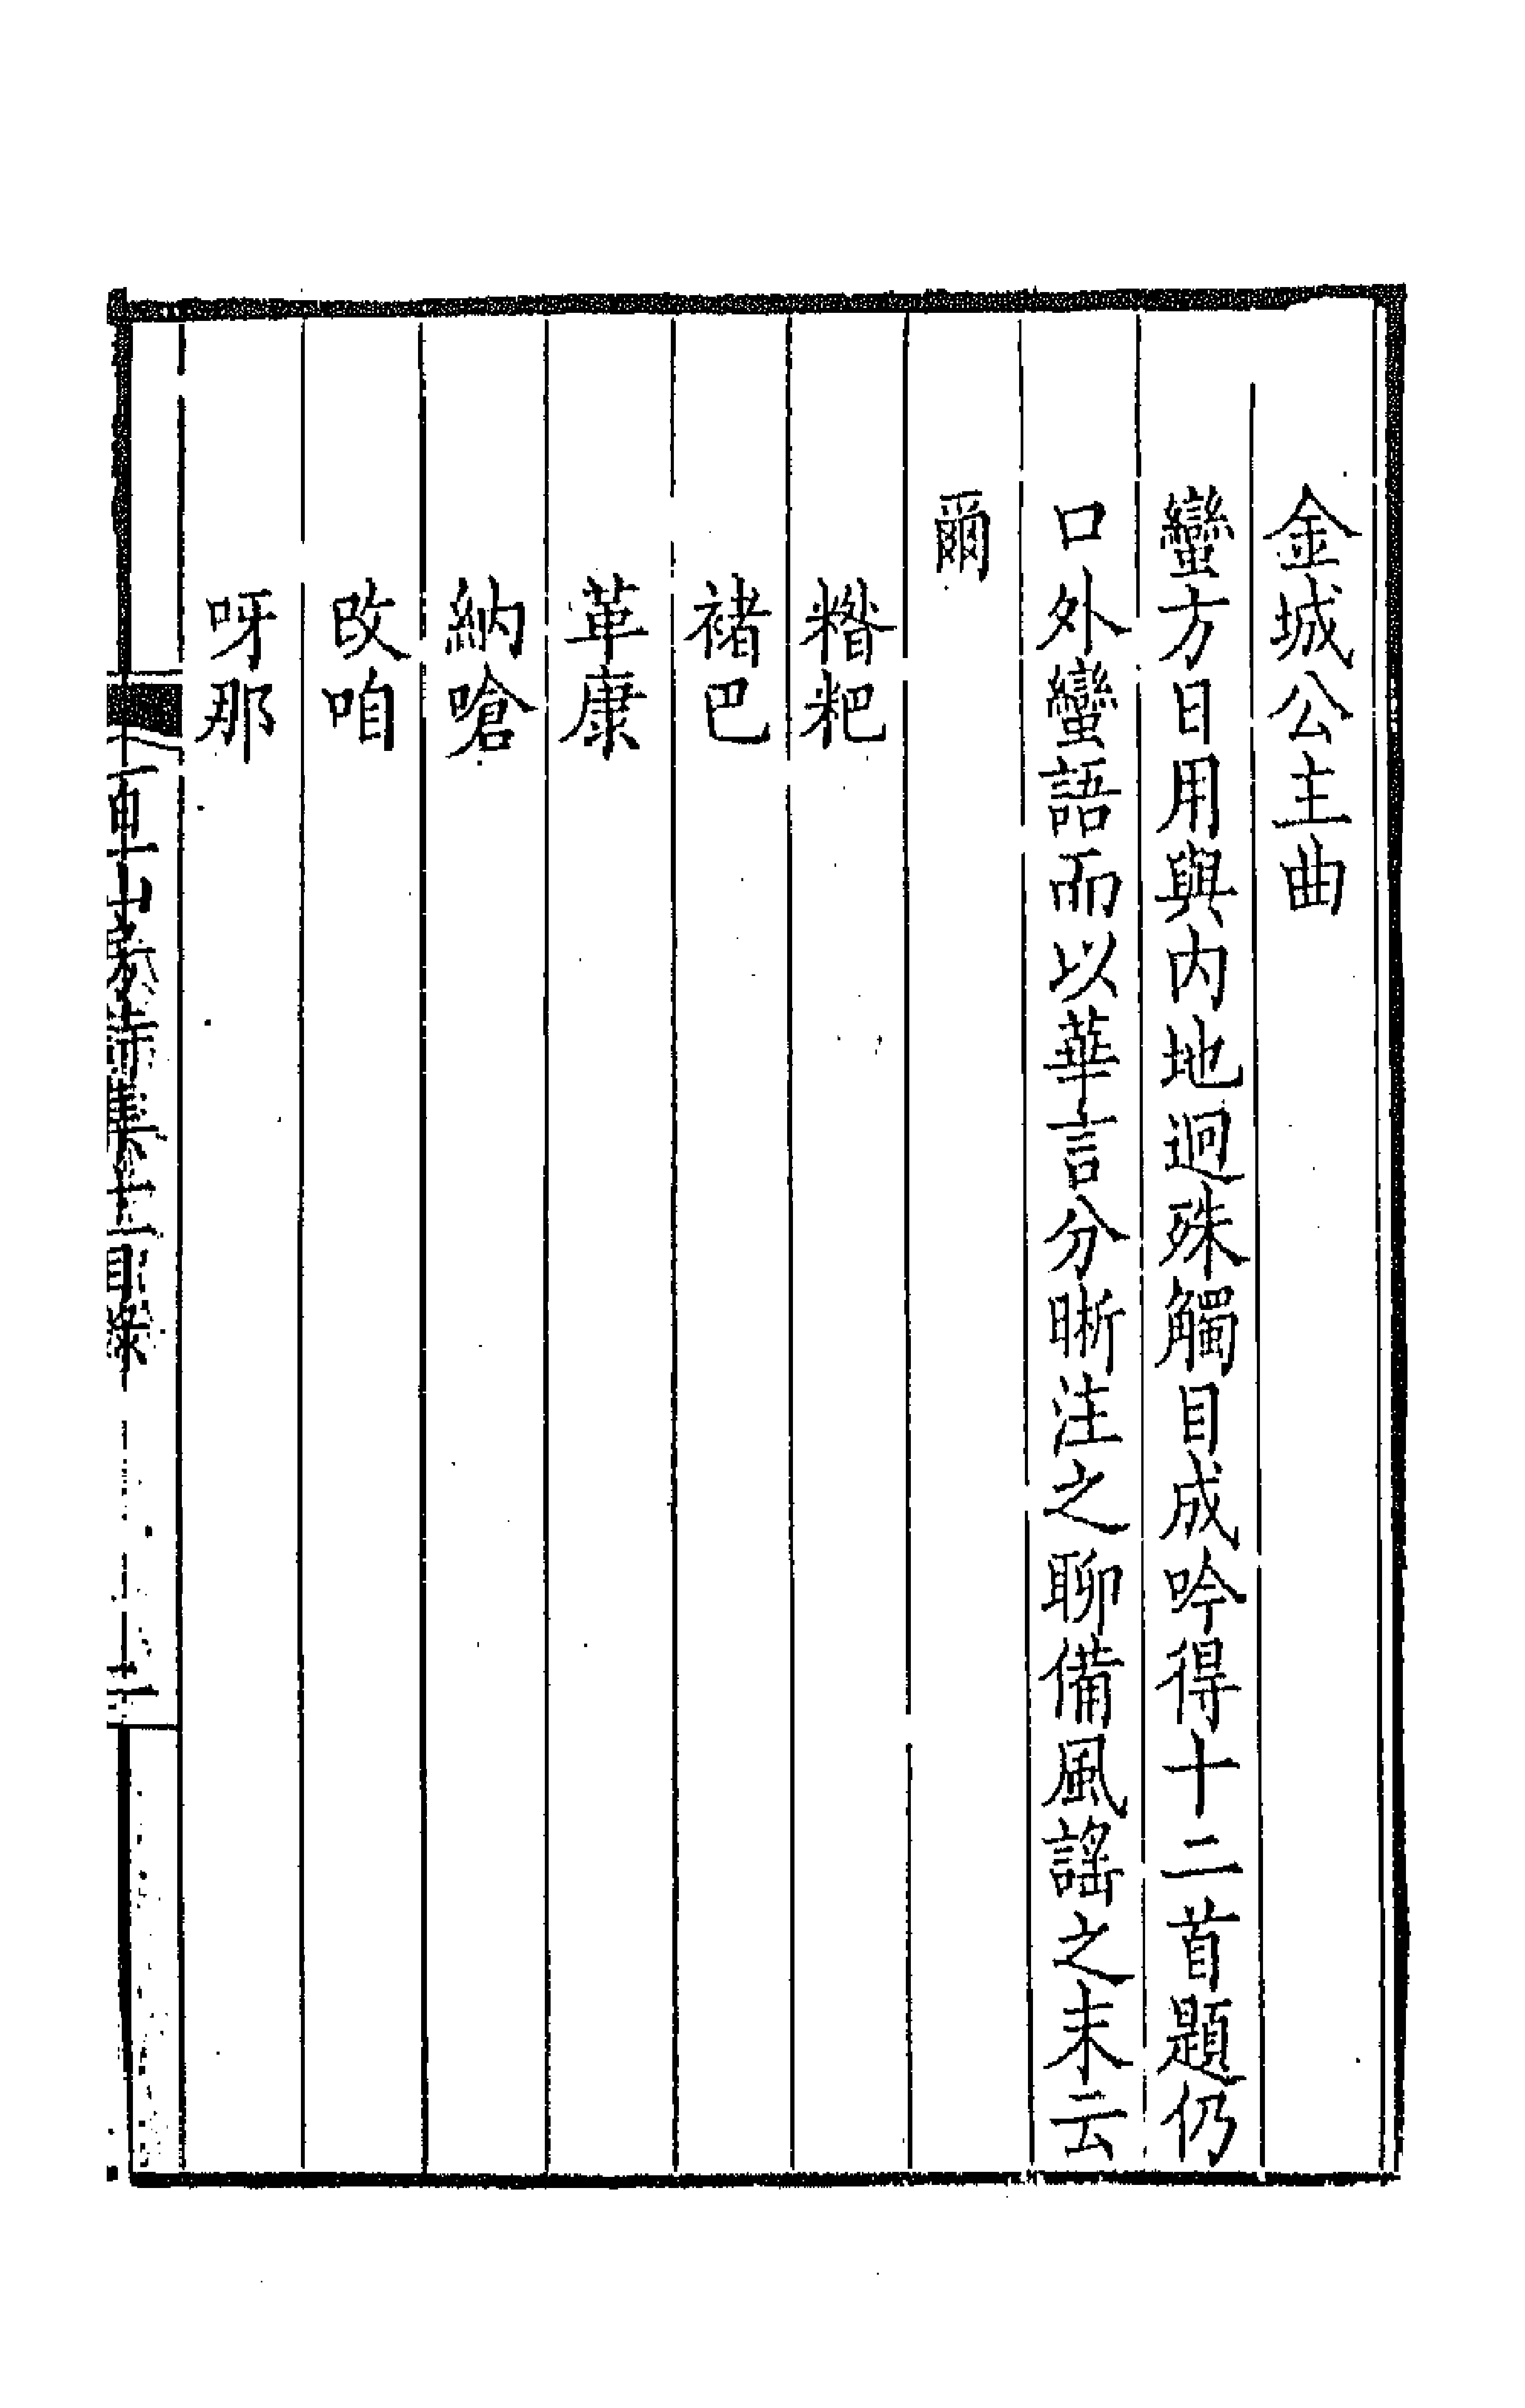 金城公主曲
蠻方日用與内地迥殊觸目成吟得十二首題仍
口外蠻語而以華言分晰注之聊備風謠之末云
爾
糌粑
褚巴
革康
納嗆
改咱
呀那